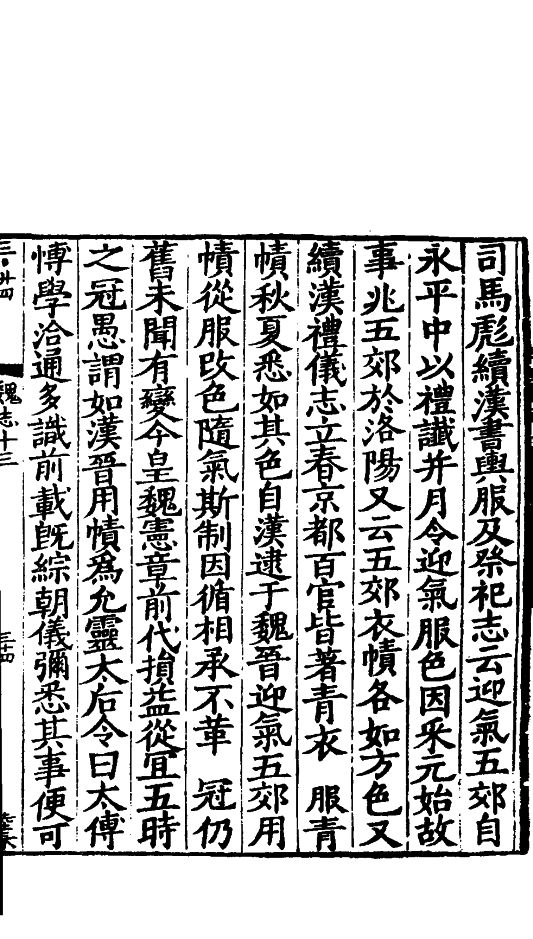 司馬彪續漢書輿服及祭祀志云迎氣五郊自
永平中以禮讖并月令迎氣服色因采元始故
事兆五郊於洛陽又云五郊衣幘各如方色又
續漢禮儀志立春京都百官皆著青衣　服青
幘秋夏悉如其色自漢逮于魏晉迎氣五郊用
幘從服改色隨氣斯制因循相承不革　冠仍
舊未聞有變今皇魏憲章前代損益從宜五時
之冠愚謂如漢晉用幘爲允靈太后令曰太傅
博學洽通多識前載旣綜朝儀彌悉其事便可
魏志十三
三十四